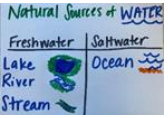 Natural Sources of WATER
Freshwater Saltwater
Lake Ocean
River
Stream